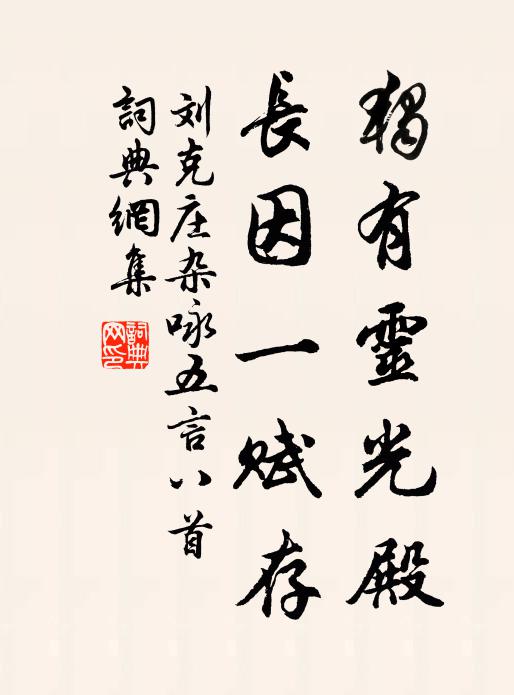 獨有靈光殿
長因一賦存
刘克庄杂咏五言八首
詞典網集
詞典網印